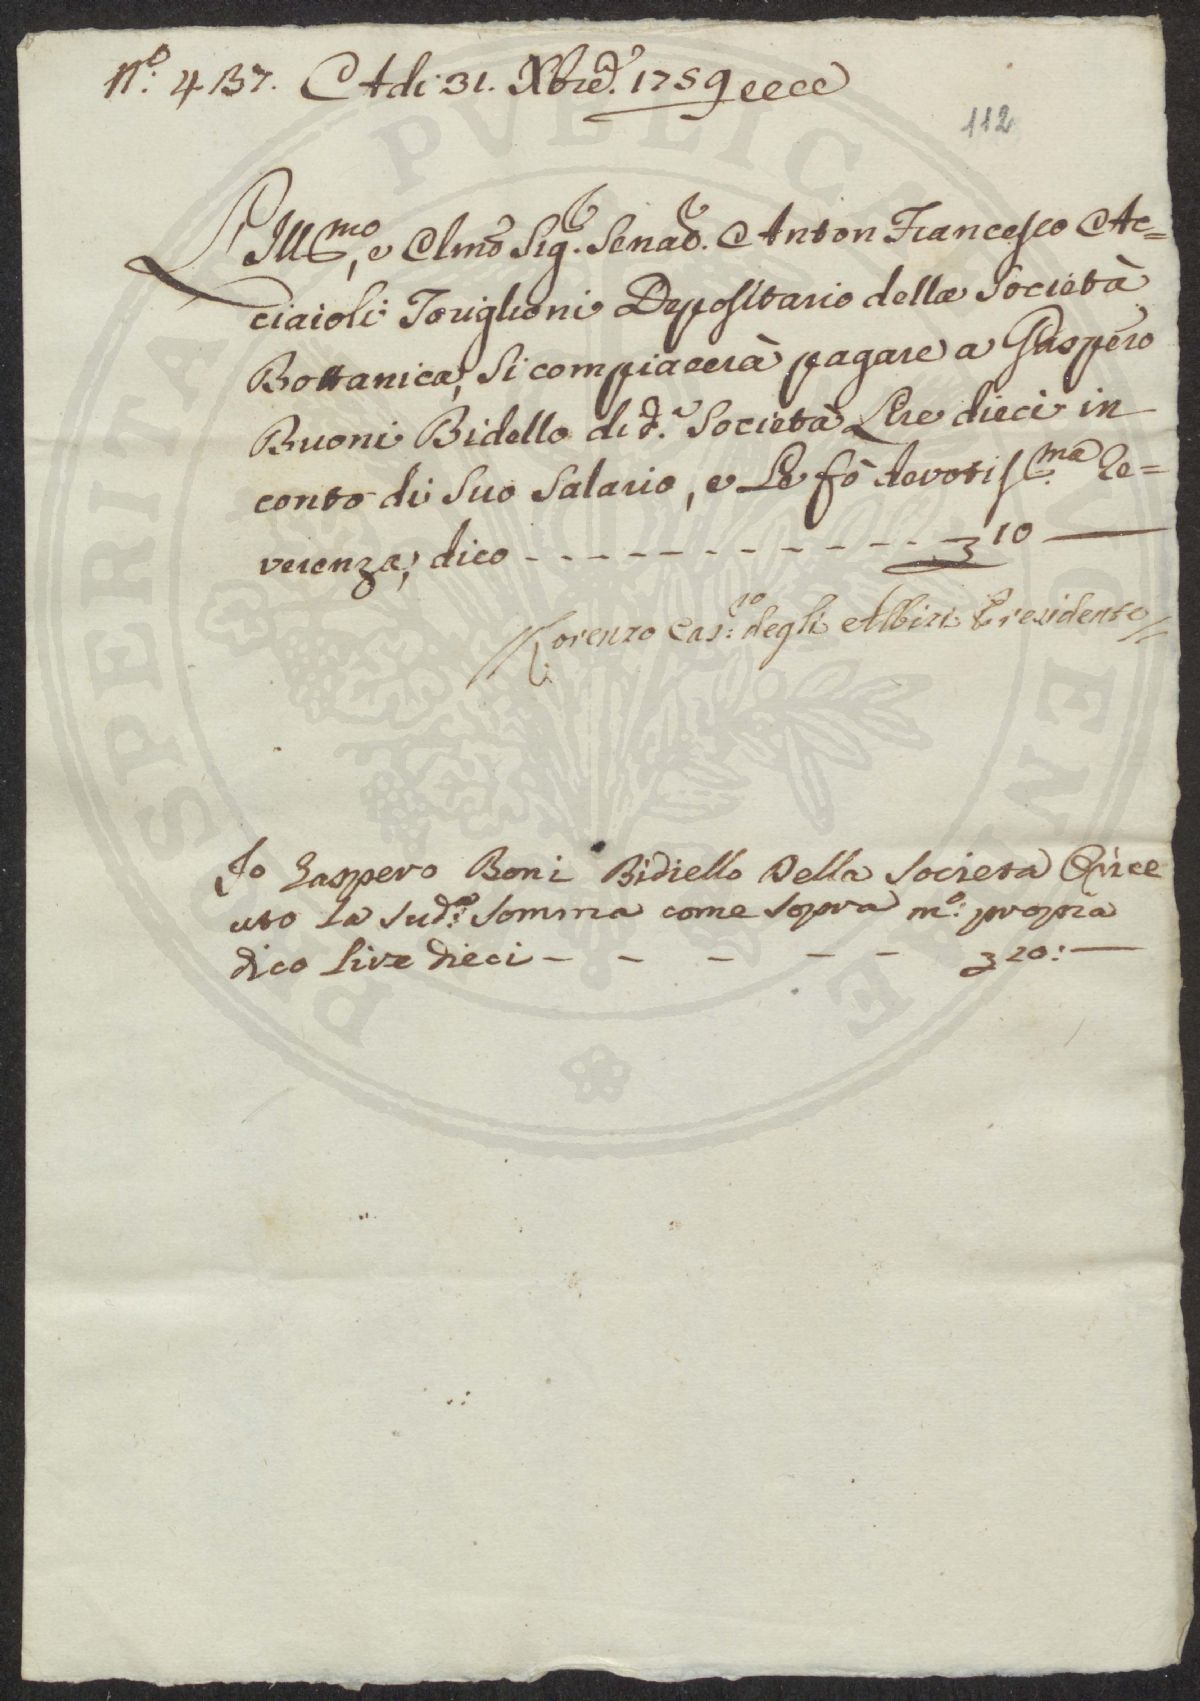 N.º 437. Adi 31. Xbre. 1759
112
L'Ill.mo, e Clmo Sig. Senat. Anton Francesco Ac=
ciaioli Toriglioni Depositario della Società
Bottanica, si compiacerà pagare a Gaspero
Buoni Bidello di d. Società Lire dieci in
conto di suo Salario, e Le fò devotiss.ma Re=
verenza, dico - - - - - - - - - - - - £ 10 —
Lorenzo Gas.ro degli Albizi Presidente
Io Gaspero Boni Bidiello Della Societa O rice
uto la sud.a somma come sopra m.o propria
dico Lire dieci - - - - - - £ 10: —
PROSPERITATI PUBLICAE AUGENDAE